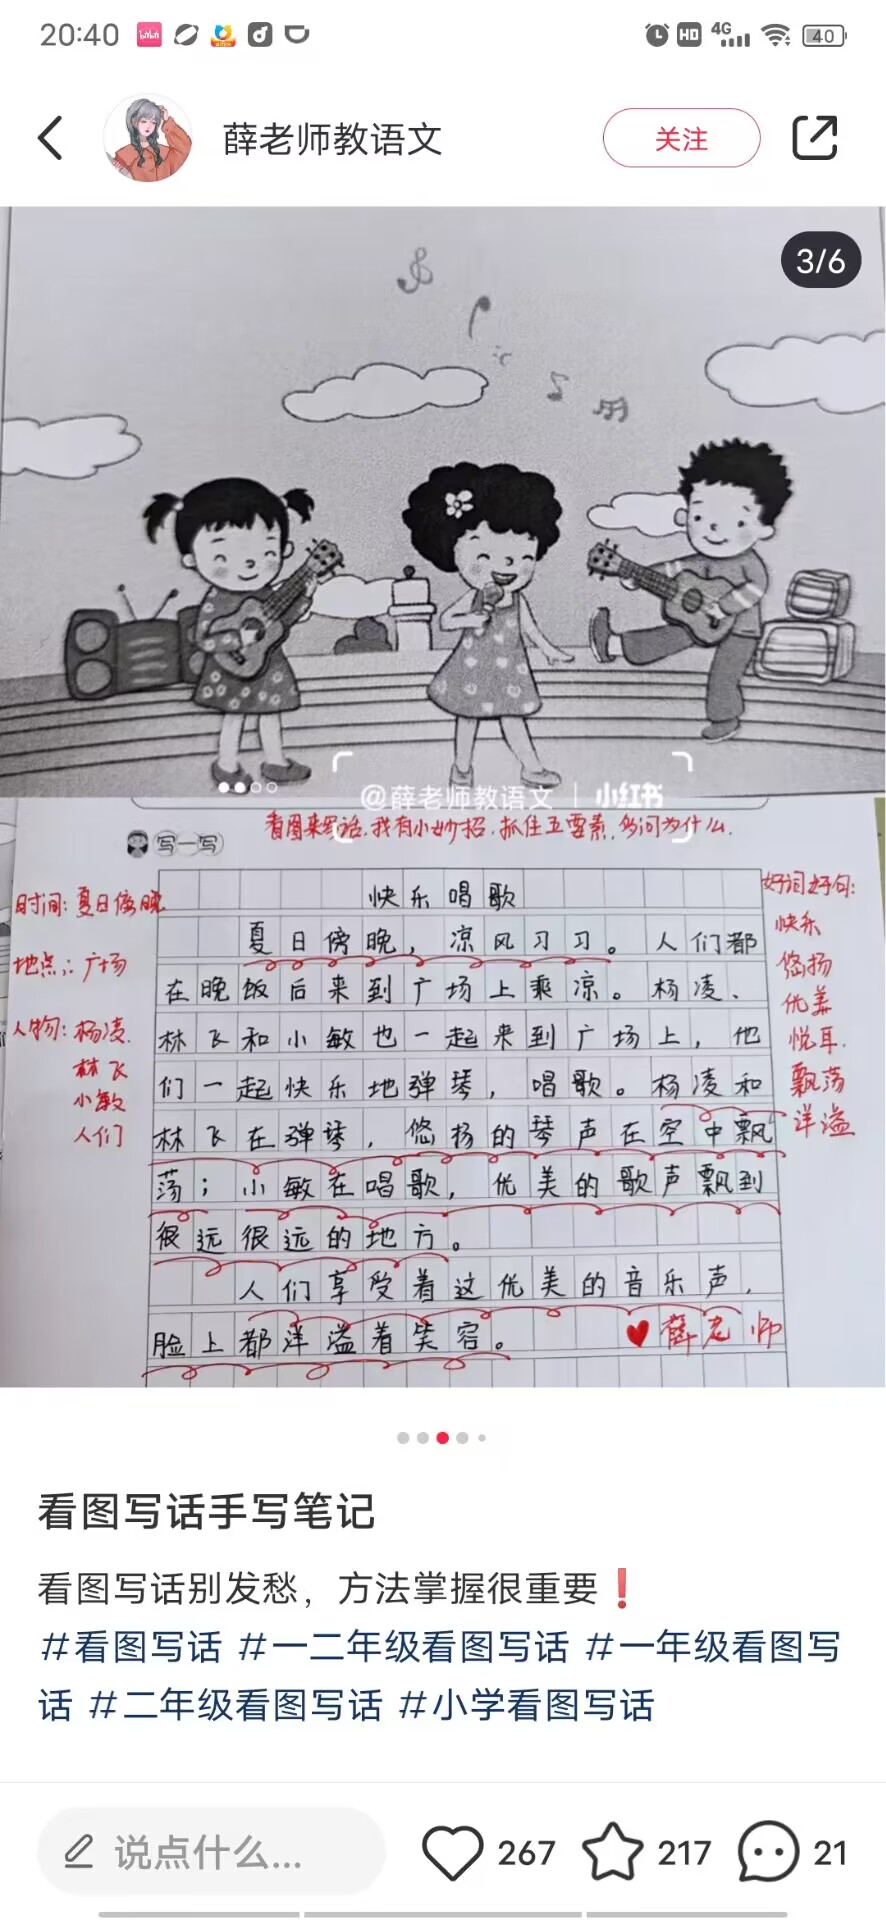 20:40
HD 4G 40
薛老师教语文
关注
3/6
@薛老师教语文 | 小红书
看图来写话,我有小妙招,抓住五要素,多问为什么.
写一写
时间:夏日傍晚
地点:广场
人物:杨凌.
林飞
小敏
人们
快乐唱歌
夏日傍晚,凉风习习。人们都
在晚饭后来到广场上乘凉。杨凌、
林飞和小敏也一起来到广场上,他
们一起快乐地弹琴,唱歌。杨凌和
林飞在弹琴,悠扬的琴声在空中飘
荡;小敏在唱歌,优美的歌声飘到
很远很远的地方。
人们享受着这优美的音乐声,
脸上都洋溢着笑容。
薛老师
好词好句:
快乐
悠扬
优美
悦耳.
飘荡
洋溢
看图写话手写笔记
看图写话别发愁,方法掌握很重要❗
#看图写话 #一二年级看图写话 #一年级看图写
话 #二年级看图写话 #小学看图写话
说点什么...
267
217
21